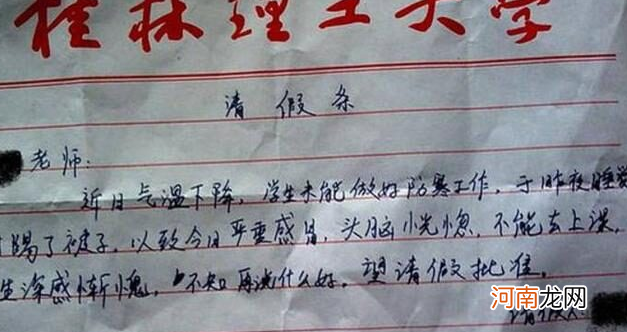 桂林理工大学
请假条
老师:
近日气温下降,学生未能做好防寒工作,于昨夜睡觉
踢了被子,以致今日严重感冒,头脑恍惚,不能去上课,
生深感惭愧,不知再说什么好。望请假批准。
请假人:
河南龙网